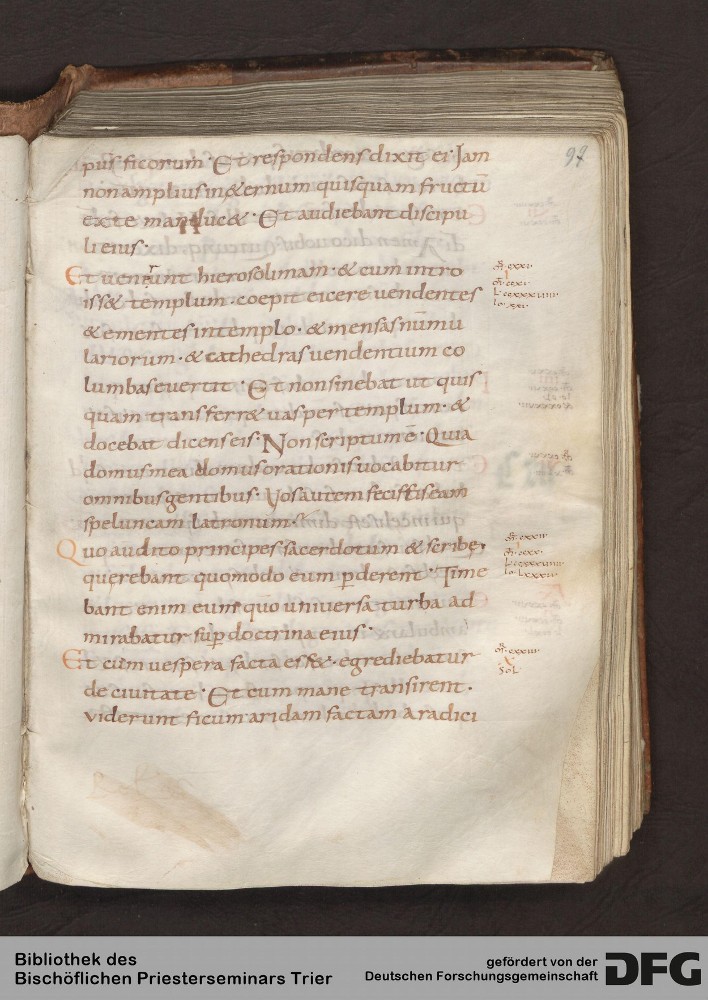 97
pus ficorum · Et respondens dixit ei · Jam
non amplius in&ernum quisquam fructū
ex te manduc& · Et audiebant discipu
li eius ·
Et uenerunt hierosolimam · & cum intro
iss& templum · coepit eicere uendentes
& ementes in templo · & mensas nūmu
lariorum · & cathedras uendentium co
lumbas euertit · Et non sinebat ut quis
quam transferr& uas per templum · &
docebat dicens eis · Non scriptum ē · Quia
domus mea domus orationis uocabitur
omnibus gentibus · Vos autem fecistis eam
speluncam latronum ·
Quo audito principes sacerdotum & scribę
querebant quomodo eum ꝑderent · Time
bant enim eum quō uniuersa turba ad
mirabatur suꝑ doctrina eius ·
Et cum uespera facta ess& · egrediebatur
de ciuitate · Et cum mane transirent ·
viderunt ficum aridam factam a radici
Bibliothek des
Bischöflichen Priesterseminars Trier
gefördert von der
Deutschen Forschungsgemeinschaft
DFG